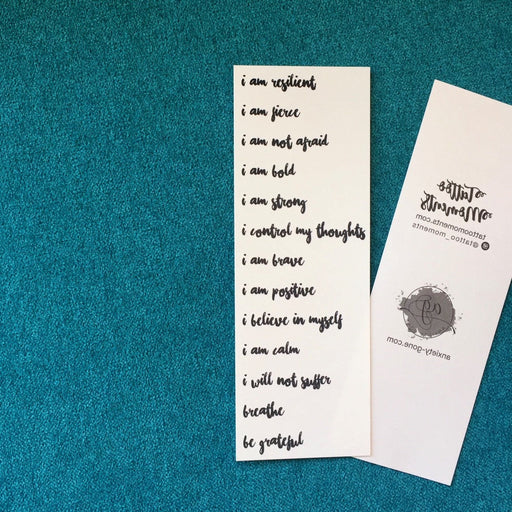 i am resilient
i am fierce
i am not afraid
i am bold
i am strong
i control my thoughts
i am brave
i am positive
i believe in myself
i am calm
i will not suffer
breathe
be grateful
Tattoo
Moments
tattoomoments.com
@tattoo_moments
ag
anxiety-gone.com